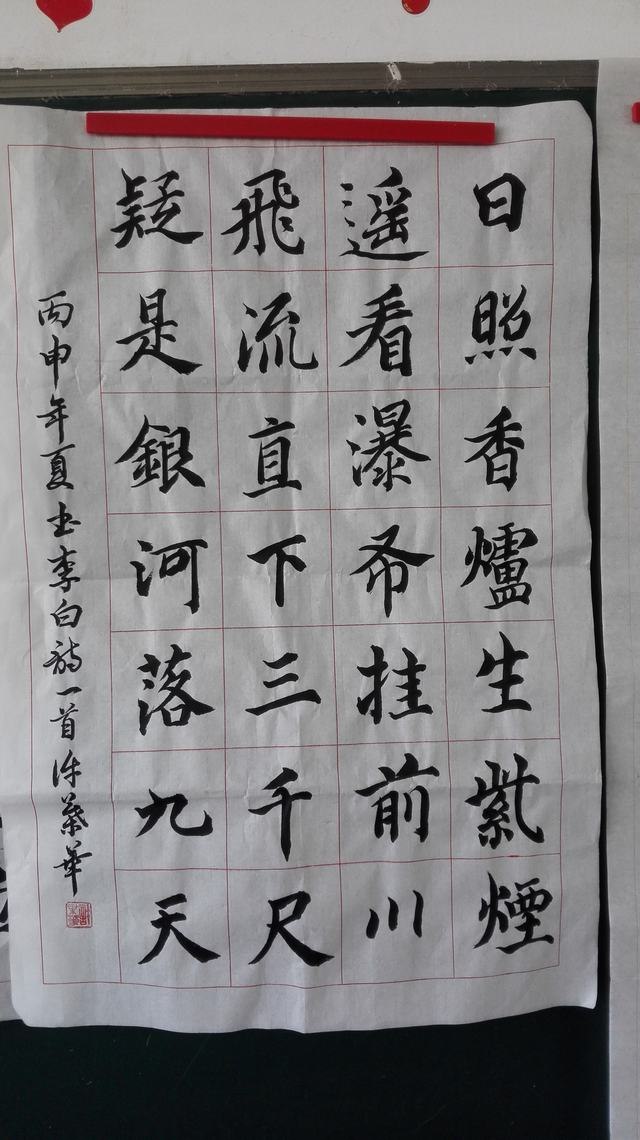 日照香爐生紫煙
遥看瀑布挂前川
飛流直下三千尺
疑是銀河落九天
丙申年夏书李白詩一首许菊華